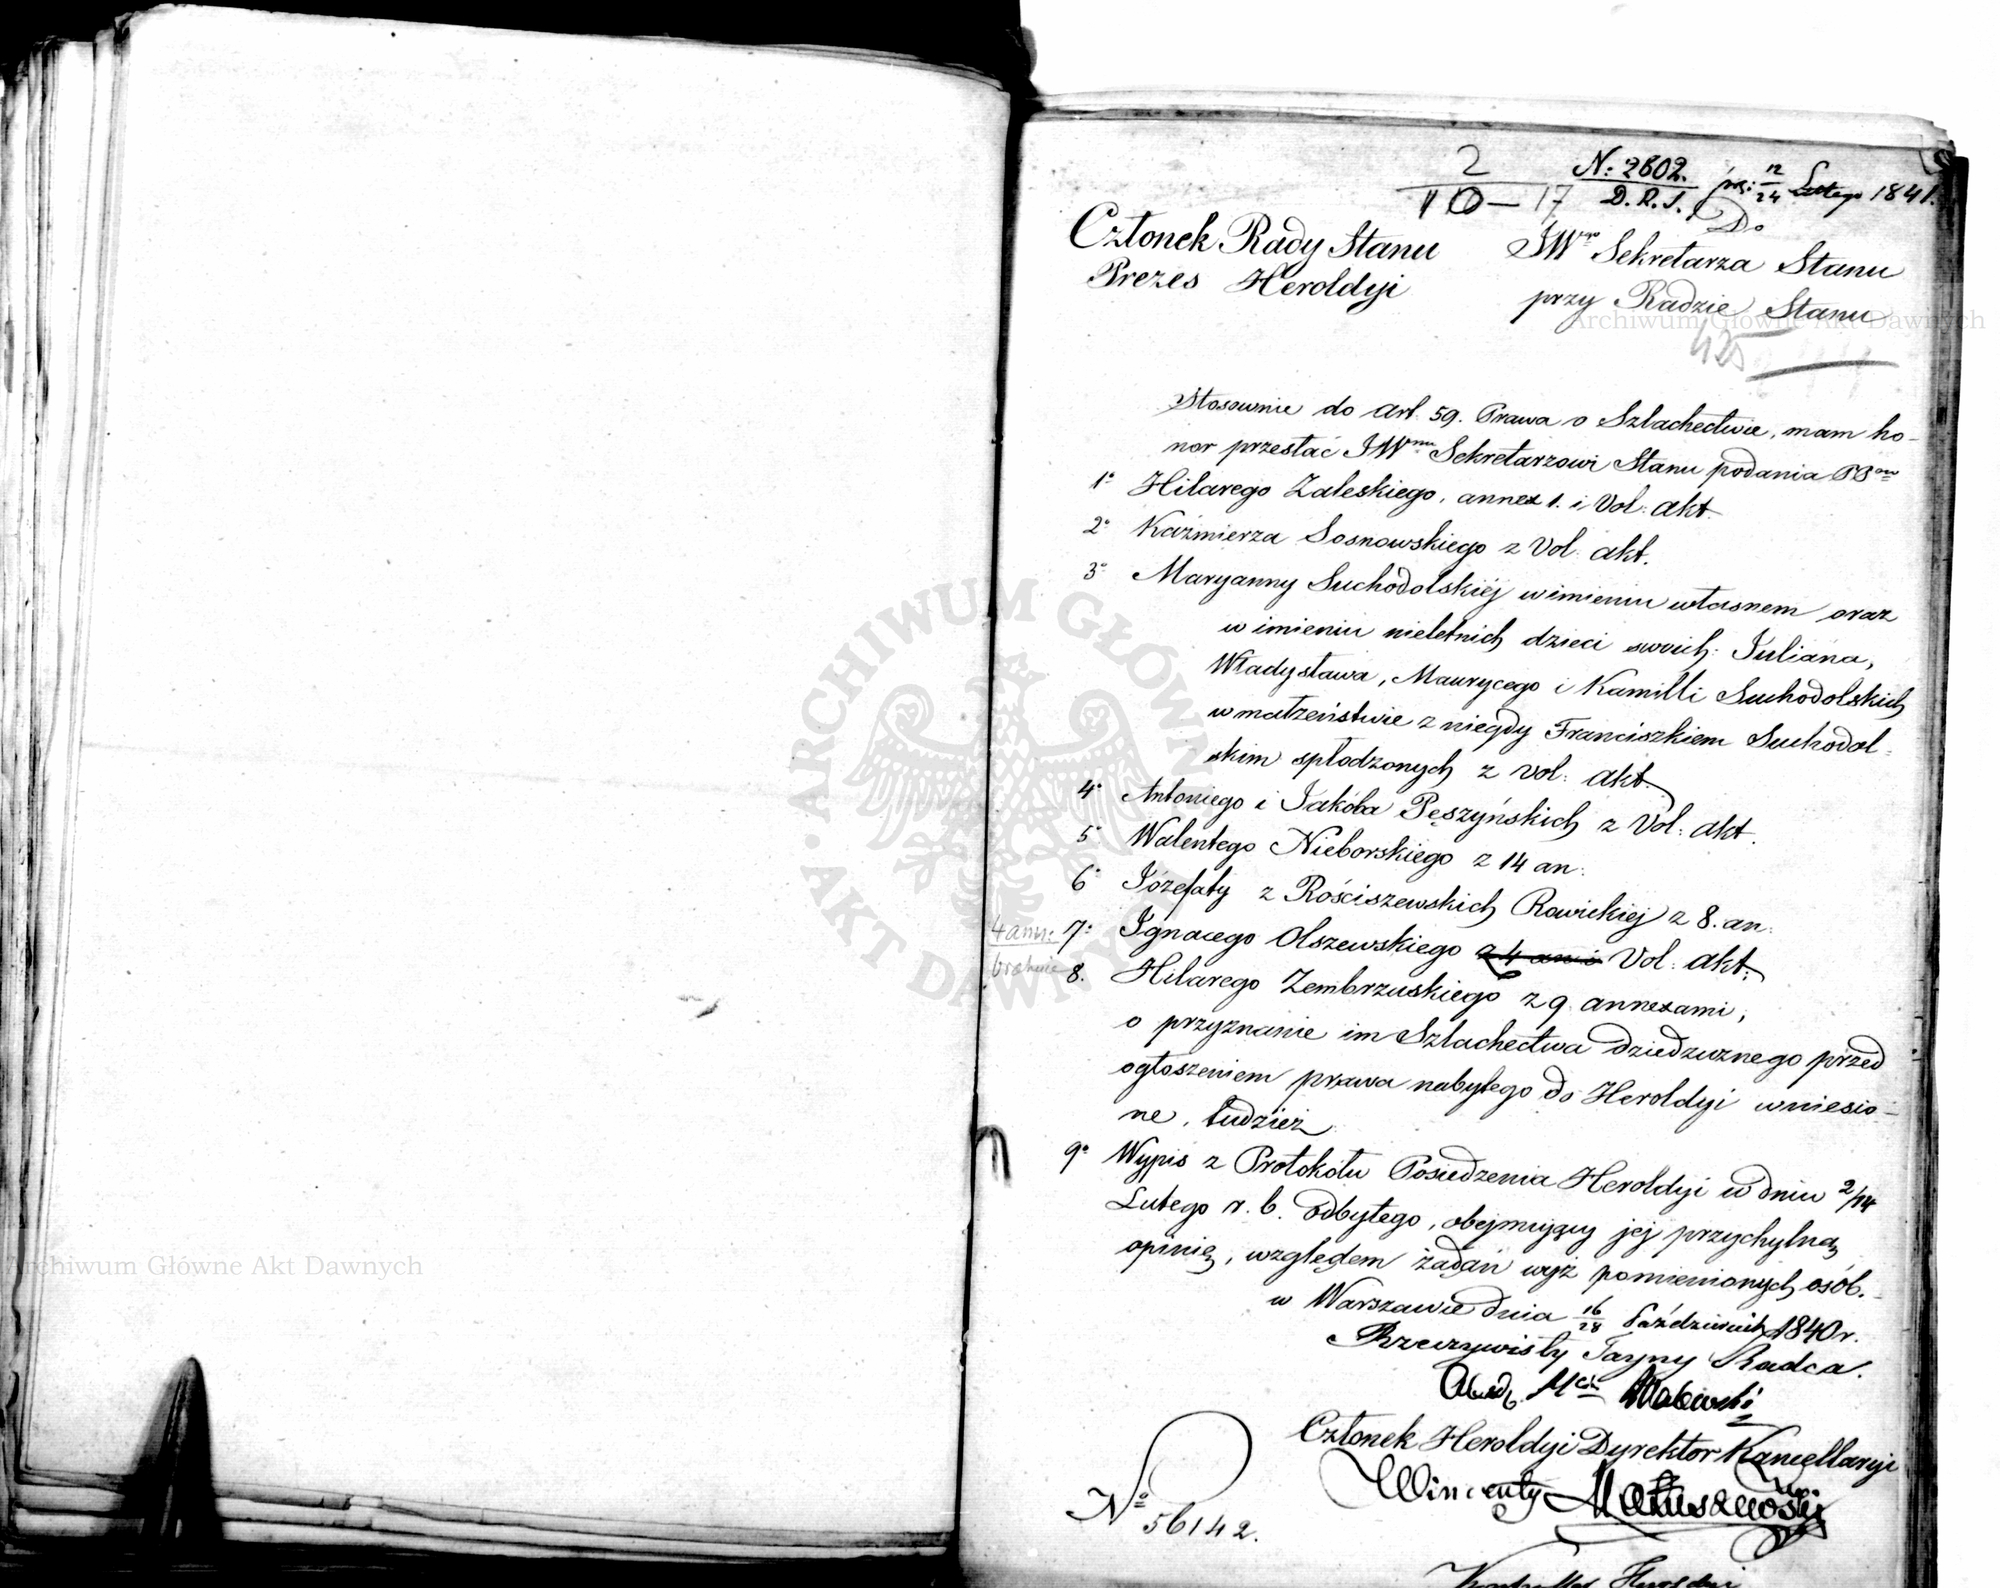 2
110 — 17
N: 2602.
D. R. S.
12/24 Lutego 1841.
Członek Rady Stanu
Prezes Heroldyi
Do
JWgo Sekretarza Stanu
przy Radzie Stanu
Stosownie do art. 59. Prawa o Szlachectwie, mam ho-
nor przesłać JWmu Sekretarzowi Stanu podania PPów
1o Hilarego Zaleskiego, annex 1. i Vol: akt.
2o Kaźmierza Sosnowskiego z Vol: akt.
3o Maryanny Suchodolskiéj w imieniu własnem oraz
w imieniu nieletnich dzieci swoich: Juliana,
Władysława, Maurycego i Kamilli Suchodolskich
w małżeństwie z niegdy Franciszkiem Suchodol-
skim spłodzonych z vol: akt.
4o Antoniego i Jakóba Pęszyńskich z Vol: akt.
5o Walentego Nieborskiego z 14 an:
6o Józefaty z Rościszewskich Rawickiej z 8. an:
4 ann:
7o Ignacego Olszewskiego z 4 an i Vol: akt:
8. Hilarego Zembrzuskiego z 9 annexami,
o przyznanie im Szlachectwa dziedzicznego przed
ogłoszeniem prawa nabytego do Heroldyi wniesio-
ne, tudzież
9o Wypis z Protokółu Posiedzenia Heroldyi w dniu 2/14
Lutego r. b. odbytego, obejmujący jej przychylną
opinię, względem żądań wyż pomienionych osób.
w Warszawie dnia 16/28 Październik 1840 r.
Rzeczywisty Tayny Radca.
Członek Heroldyi Dyrektor Kancellaryi
Wincenty Matuszewski
No 56142.
Heroldyi
Archiwum Główne Akt Dawnych
Archiwum Główne Akt Dawnych
ARCHIWUM GŁÓWNE AKT DAWNYCH